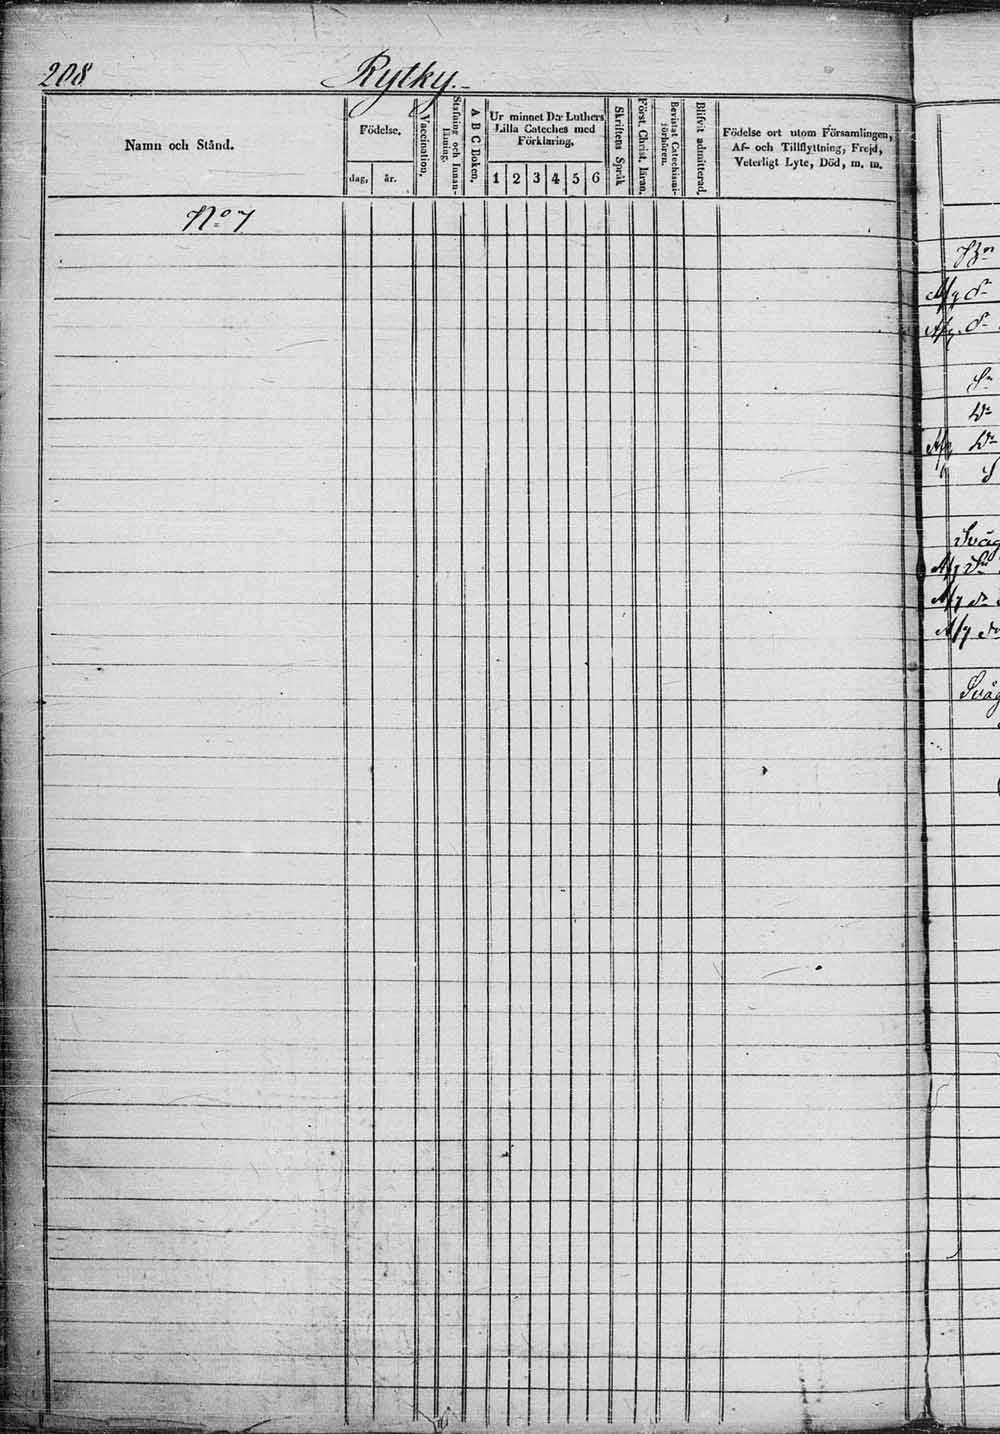 208 Rytky.
Namn och Stånd.
Födelse.
dag, år.
Vaccination.
Stafning och Innan-
läsning.
A B C Boken.
Ur minnet D:r Luthers
Lilla Cateches med
Förklaring.
1 2 3 4 5 6
Skriftens Språk
Först. Christ. Läran.
Bevistat Catechismi-
förhören.
Blifvit admitterad.
Födelse ort utom Församlingen,
Af- och Tillflyttning, Frejd,
Veterligt Lyte, Död, m. m.
No 7
Afg
Afg
Afg
Sväg
Afg
Afg
Afg
Sväg